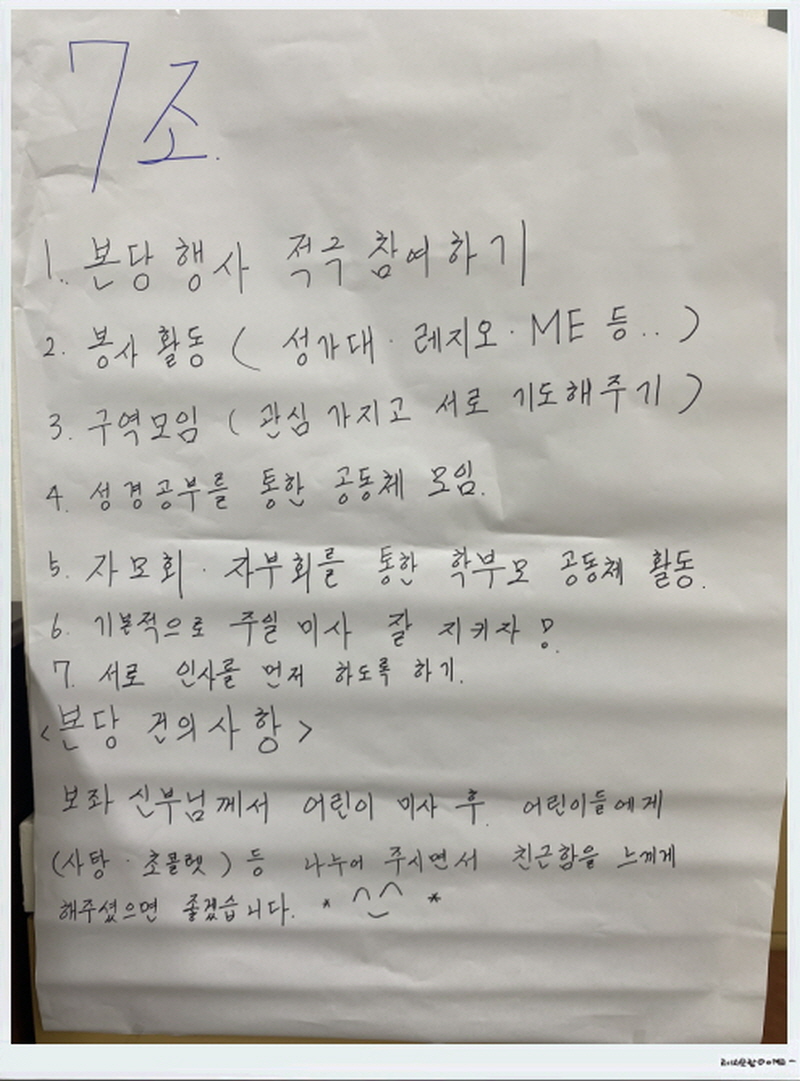 7조.
1. 본당 행사 적극 참여하기
2. 봉사 활동 ( 성가대 · 레지오 · ME 등.. )
3. 구역모임 ( 관심 가지고 서로 기도해주기 )
4. 성경공부를 통한 공동체 모임.
5. 자모회 · 자부회를 통한 학부모 공동체 활동.
6. 기본적으로 주일 미사 잘 지키자!
7. 서로 인사를 먼저 하도록 하기.
<본당 건의사항>
보좌 신부님께서 어린이 미사 후. 어린이들에게
(사탕 · 초콜렛) 등 나누어 주시면서 친근함을 느끼게
해주셨으면 좋겠습니다. * ^_^ *